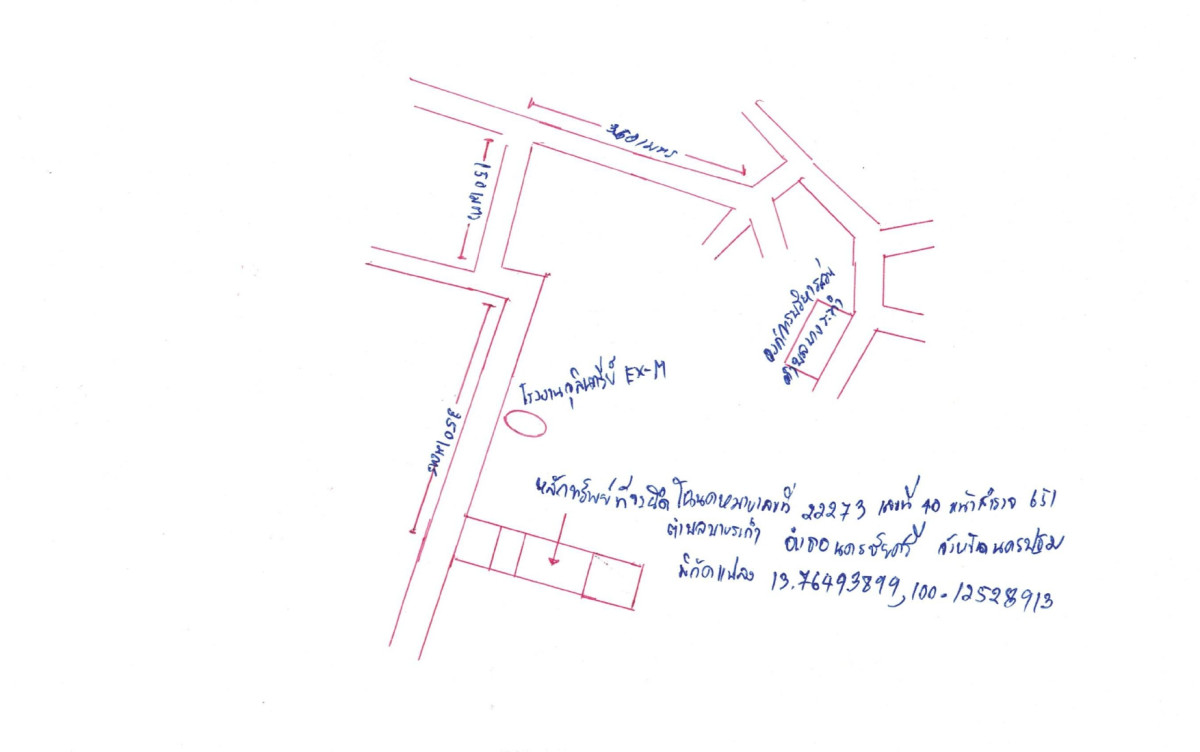 360 เมตร
150 เมตร
องค์การบริหารส่วน
ตำบลบางระกำ
โรงงานจุลินทรีย์ EX-M
350 เมตร
หลักทรัพย์ที่จะยึด โฉนดหมายเลขที่ 22273 เลขที่ 40 หน้าสำรวจ 651
ตำบลบางระกำ อำเภอนครชัยศรี จังหวัดนครปฐม
พิกัดแปลง 13.76493899,100.12528913